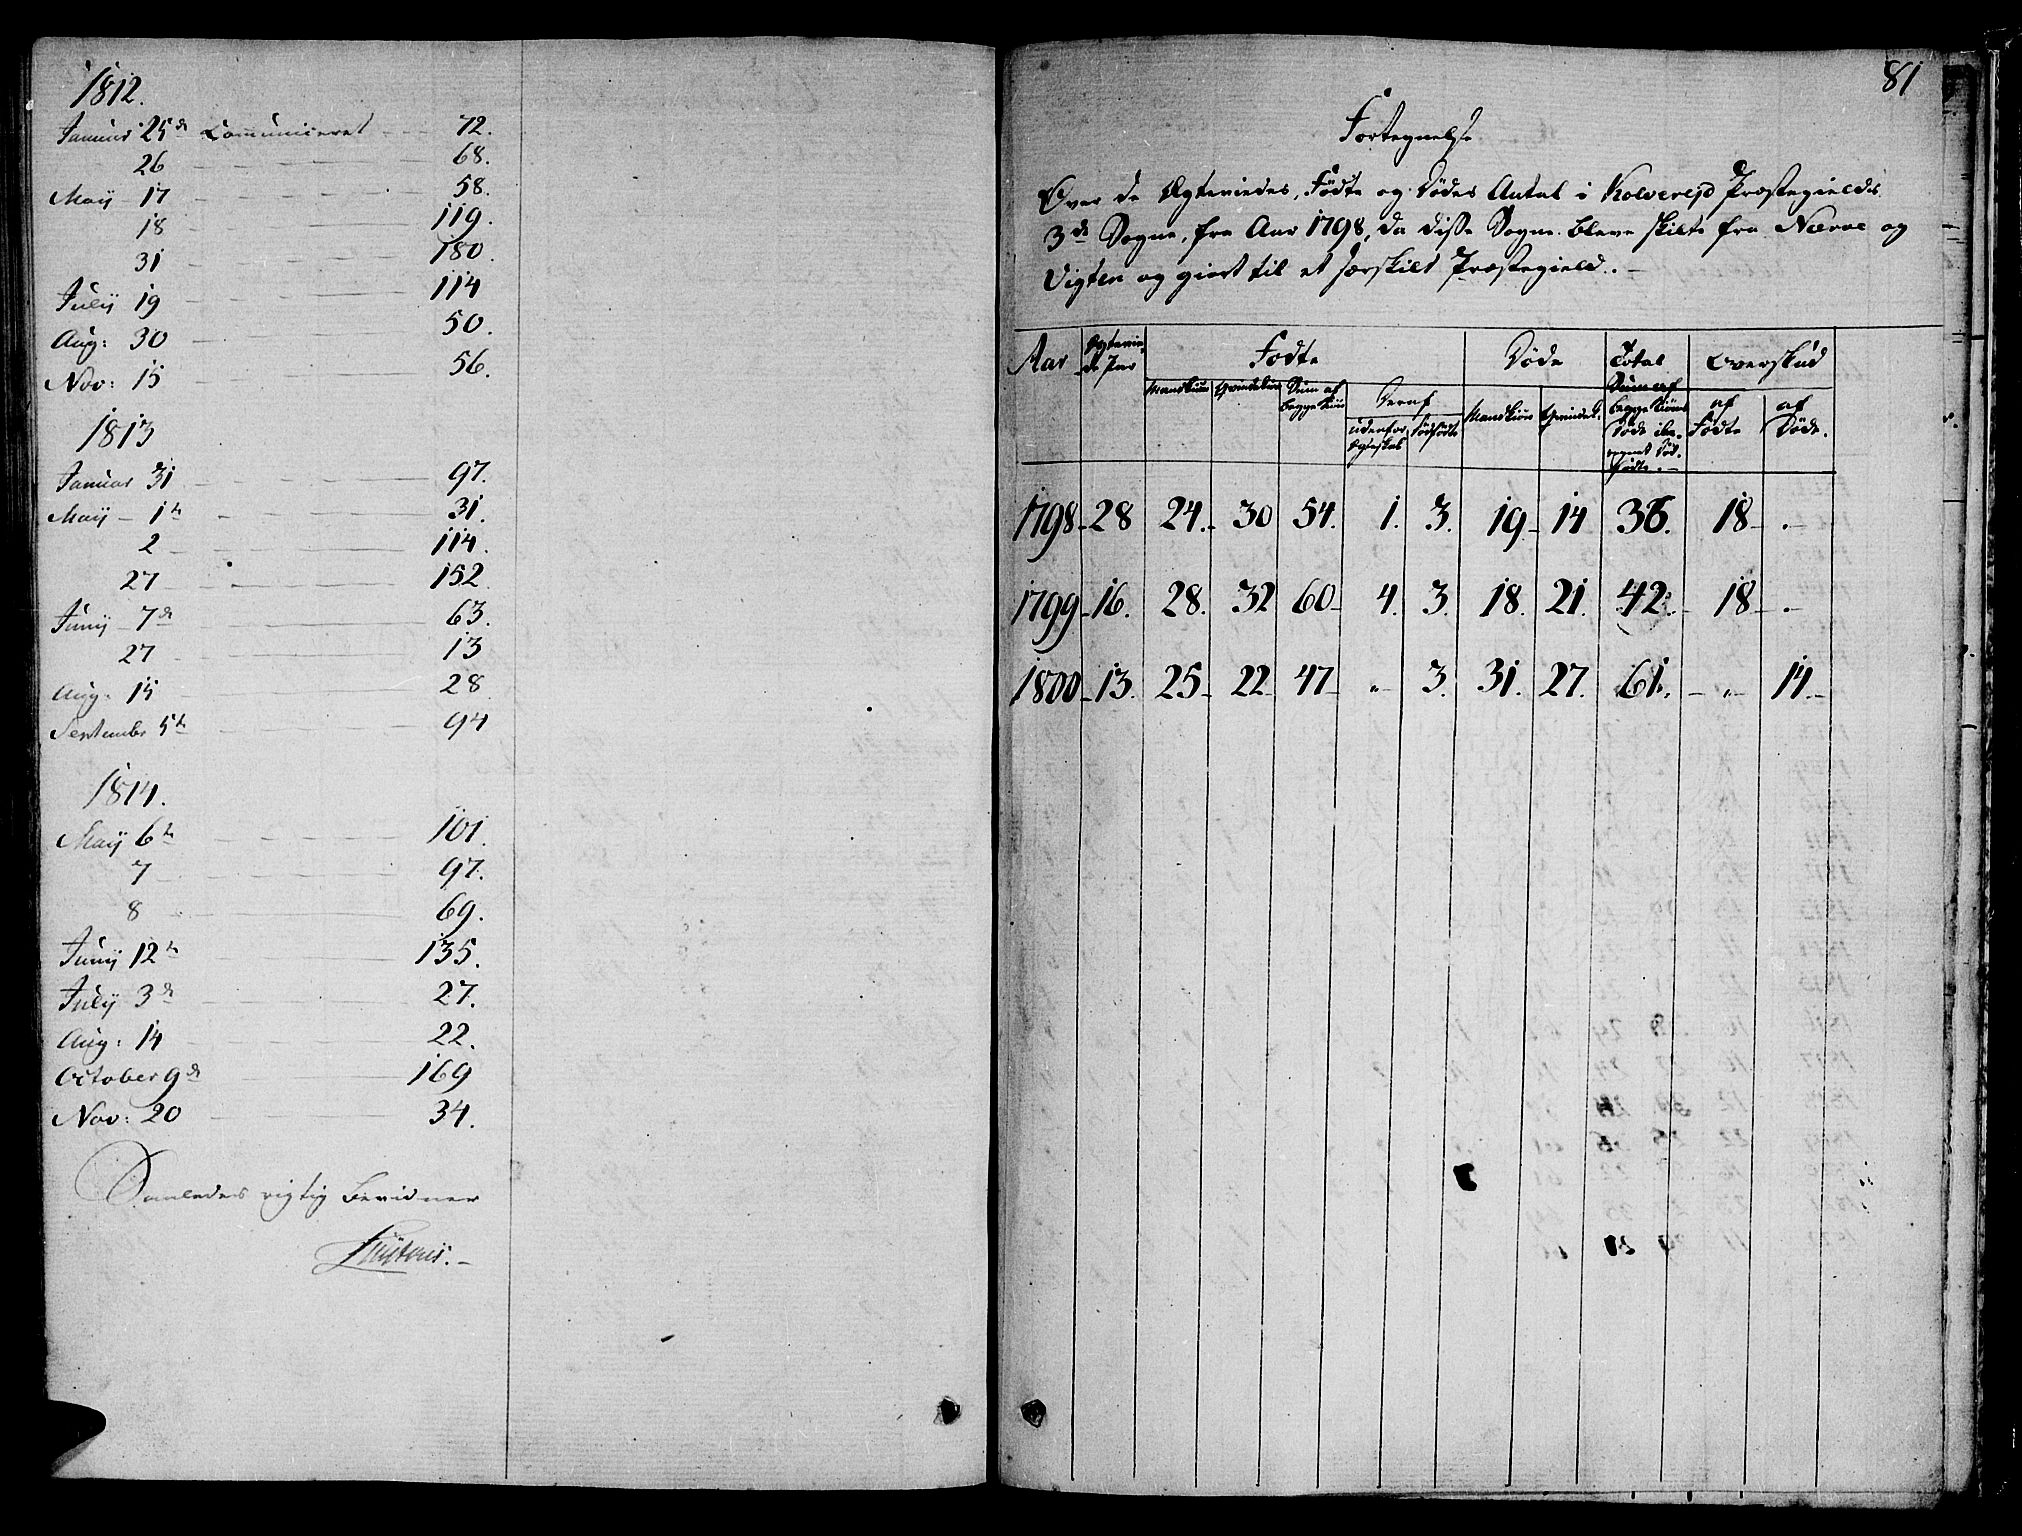 1812.
Januar 25de Communiceret - - - 72.
26 - - - 68.
Maij - 17 - - - 58.
18 - - - 119.
31 - - - 180.
Julij 19 - - - 114
Aug: 30 - - - 50.
Nov: 15 - - - 56.
1813
Januar 31 - - - 97.
Maij - 1te - - - 31.
2 - - - 114.
27 - - - 152
Junij - 7de - - - 63.
27 - - - 13
Aug: 15 - - - 28
September 5te - - - 94
1814.
Maij 6te - - - 101.
7 - - - 97.
8 - - - 69.
Junij 12te - - - 135.
Julij 3de - - - 27.
Aug: 14 - - - 22.
October 9de - - - 169
Nov: 20 - - - 34.
Saaledes rigtig bevidner
81
Fortegnelse
Over de Ægteviedes, Fødte og Dødes Antal i Kolverejd Præstegields
3de Sogne, fra Aar 1798, da disse Sogne bleve skilte fra Nærøe og
Vigten og giort til et særskilt Præstegield. -
Aar Ægtevie-de Par Fødte Døde Total Overskud
Mandkiøn Qvindekiøn Sum af begge Kiøn Deraf Mandkiøn Qvindek. Sum af begge Kiøns Døde ibe-regnet Død-fødte. - af Fødte af Døde.
udenfor Egteskab Dødfødte
1798 - 28 24. - 30 54. 1. 3. 19 - 14 36. 18 - . -
1799 - 16. 28. 32 60 - 4. 3. 18. 21. 42. - 18 - . -
1800 - 13. 25 - 22 - 47 - " - 3. 31. 27. 61. - " - 14. -